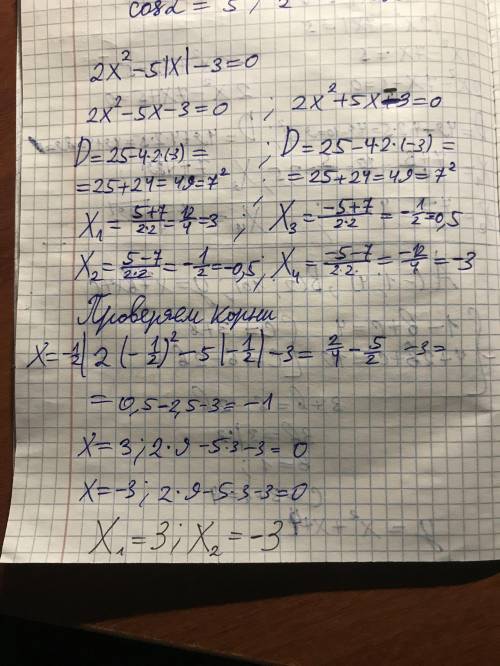 cos α = 5 / 2
2x² - 5|x| - 3 = 0
2x² - 5x - 3 = 0 ; 2x² + 5x - 3 = 0
D = 25 - 4·2·(-3) = ; D = 25 - 4·2·(-3) =
= 25 + 24 = 49 = 7² = 25 + 24 = 49 = 7²
X₁ = (5+7)/(2·2) = 12/4 = 3 ; X₃ = (-5+7)/(2·2) = -1/2 = 0,5
X₂ = (5-7)/(2·2) = -1/2 = -0,5 ; X₄ = (-5-7)/(2·2) = -12/4 = -3
Проверяем корни
X = -1/2 | 2(-1/2)² - 5|-1/2| - 3 = 2/4 - 5/2 - 3 =
= 0,5 - 2,5 - 3 = -1
X = 3 ; 2·9 - 5·3 - 3 = 0
X = -3 ; 2·9 - 5·3 - 3 = 0
X₁ = 3 ; X₂ = -3